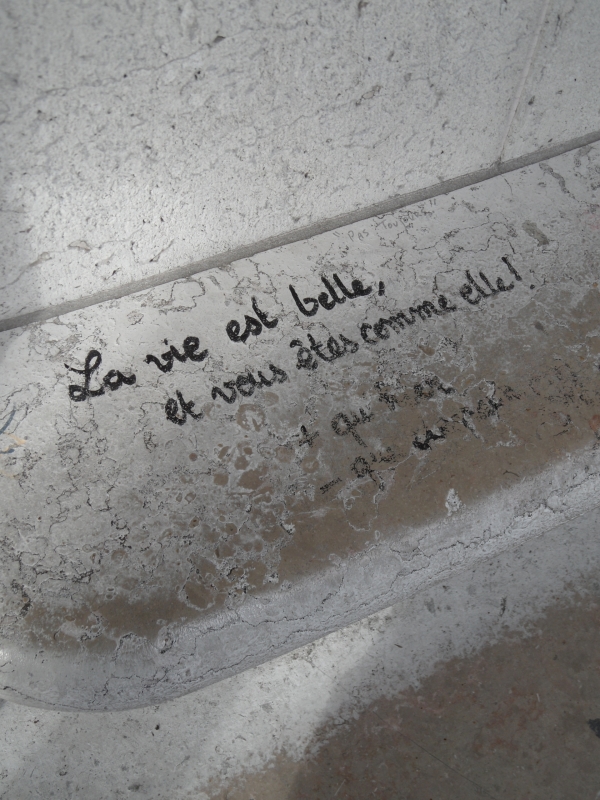 La vie est belle,
et vous êtes comme elle!
+ qu'hier
- que